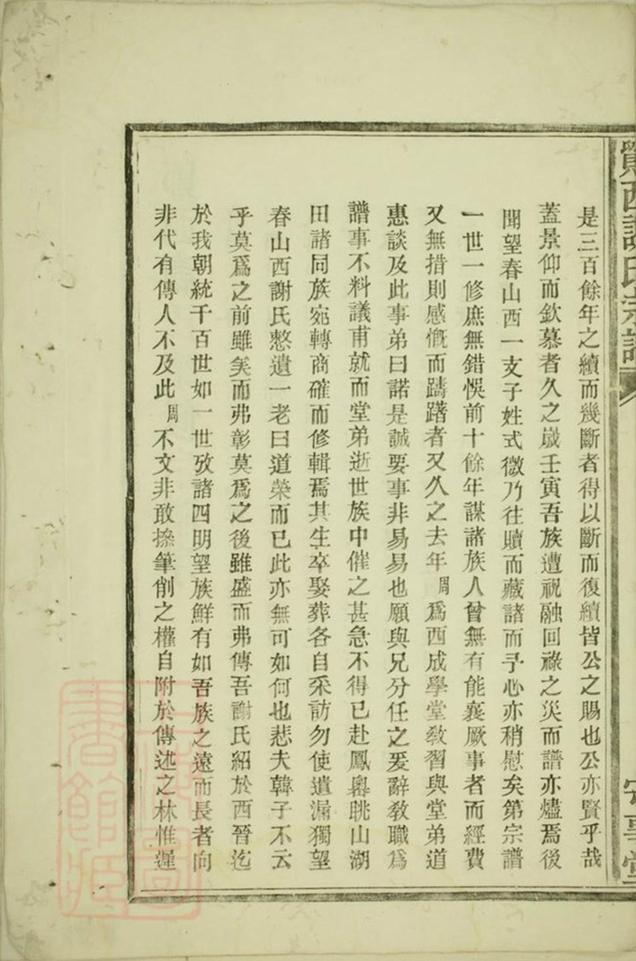 鄮西謝氏宗譜
是三百餘年之續而幾斷者得以斷而復續皆公之賜也公亦賢乎哉
蓋景仰而欽慕者久之歲壬寅吾族遭祝融回祿之災而譜亦燼焉後
聞望春山西一支子姓式微乃往贖而藏諸而予心亦稍慰矣第宗譜
一世一修庶無錯悞前十餘年謀諸族人曾無有能襄厥事者而經費
又無措則感慨而躊躇者又久之去年周為西成學堂敎習與堂弟道
惠談及此事弟曰諾是誠要事非易易也願與兄分任之爰辭敎職為
譜事不料議甫就而堂弟逝世族中催之甚急不得已赴鳳嶴眺山湖
田諸同族宛轉商確而修輯焉其生卒娶葬各自采訪勿使遺漏獨望
春山西謝氏憗遺一老曰道榮而已此亦無可如何也悲夫韓子不云
乎莫為之前雖美而弗彰莫為之後雖盛而弗傳吾謝氏紹於西晉迄
於我朝統千百世如一世攷諸四明望族鮮有如吾族之遠而長者向
非代有傳人不及此周不文非敢操筆削之權自附於傳述之林惟遲